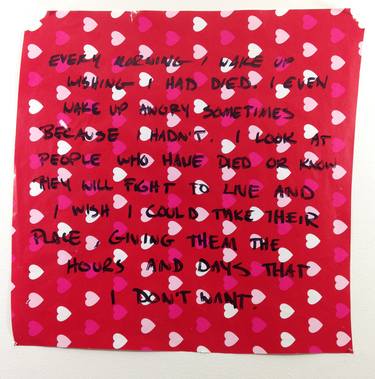 EVERY MORNING I WAKE UP
WISHING I HAD DIED. I EVEN
WAKE UP ANGRY SOMETIMES
BECAUSE I HADN'T. I LOOK AT
PEOPLE WHO HAVE DIED OR KNOW
THEY WILL FIGHT TO LIVE AND
I WISH I COULD TAKE THEIR
PLACE, GIVING THEM THE
HOURS AND DAYS THAT
I DON'T WANT.